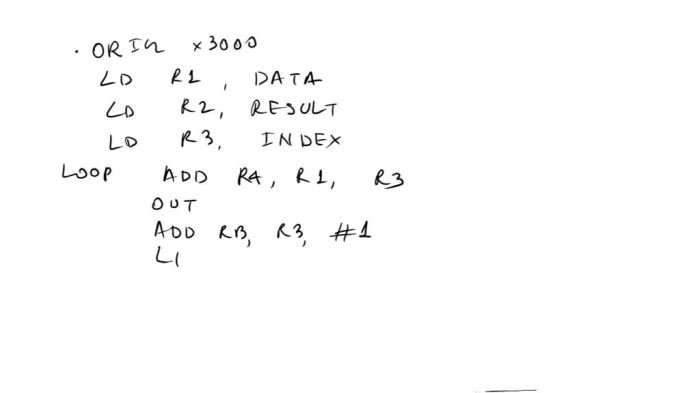 .ORIG x3000
LD R1, DATA
LD R2, RESULT
LD R3, INDEX
LOOP ADD R4, R1, R3
OUT
ADD R3, R3, #1